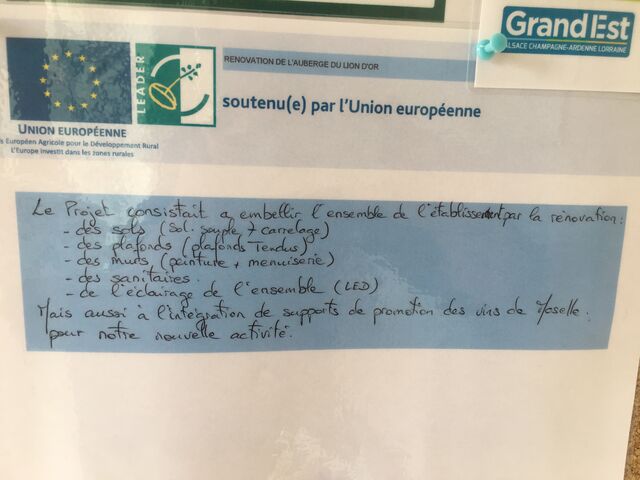 GrandEst
ALSACE CHAMPAGNE-ARDENNE LORRAINE
LEADER
RENOVATION DE L'AUBERGE DU LION D'OR
soutenu(e) par l'Union européenne
UNION EUROPÉENNE
s Européen Agricole pour le Développement Rural
L'Europe investit dans les zones rurales
Le Projet consistait a embellir l'ensemble de l'établissement par la rénovation :
- des sols (sol. souple + carrelage)
- des plafonds (plafonds Tendus)
- des murs (peinture + menuiserie)
- des sanitaires.
- de l'éclairage de l'ensemble (LED)
Mais aussi à l'intégration de supports de promotion des vins de Moselle.
pour notre nouvelle activité.